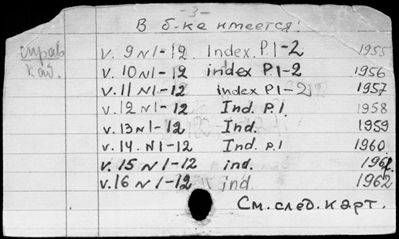 - 3 -
В б-ке имеется:
справ. каб.
v. 9 N 1-12 Index. P.1-2 1955
v. 10 N 1-12 index P.1-2 1956
v. 11 N 1-12 index P1-2 1957
v. 12 N 1-12 Ind. P.1. 1958
v. 13 N 1-12 Ind. 1959
v. 14. N 1-12 Ind. P.1 1960
v. 15 N 1-12 ind. 1961.
v. 16 N 1-12 ind. 1962
См. след. карт.